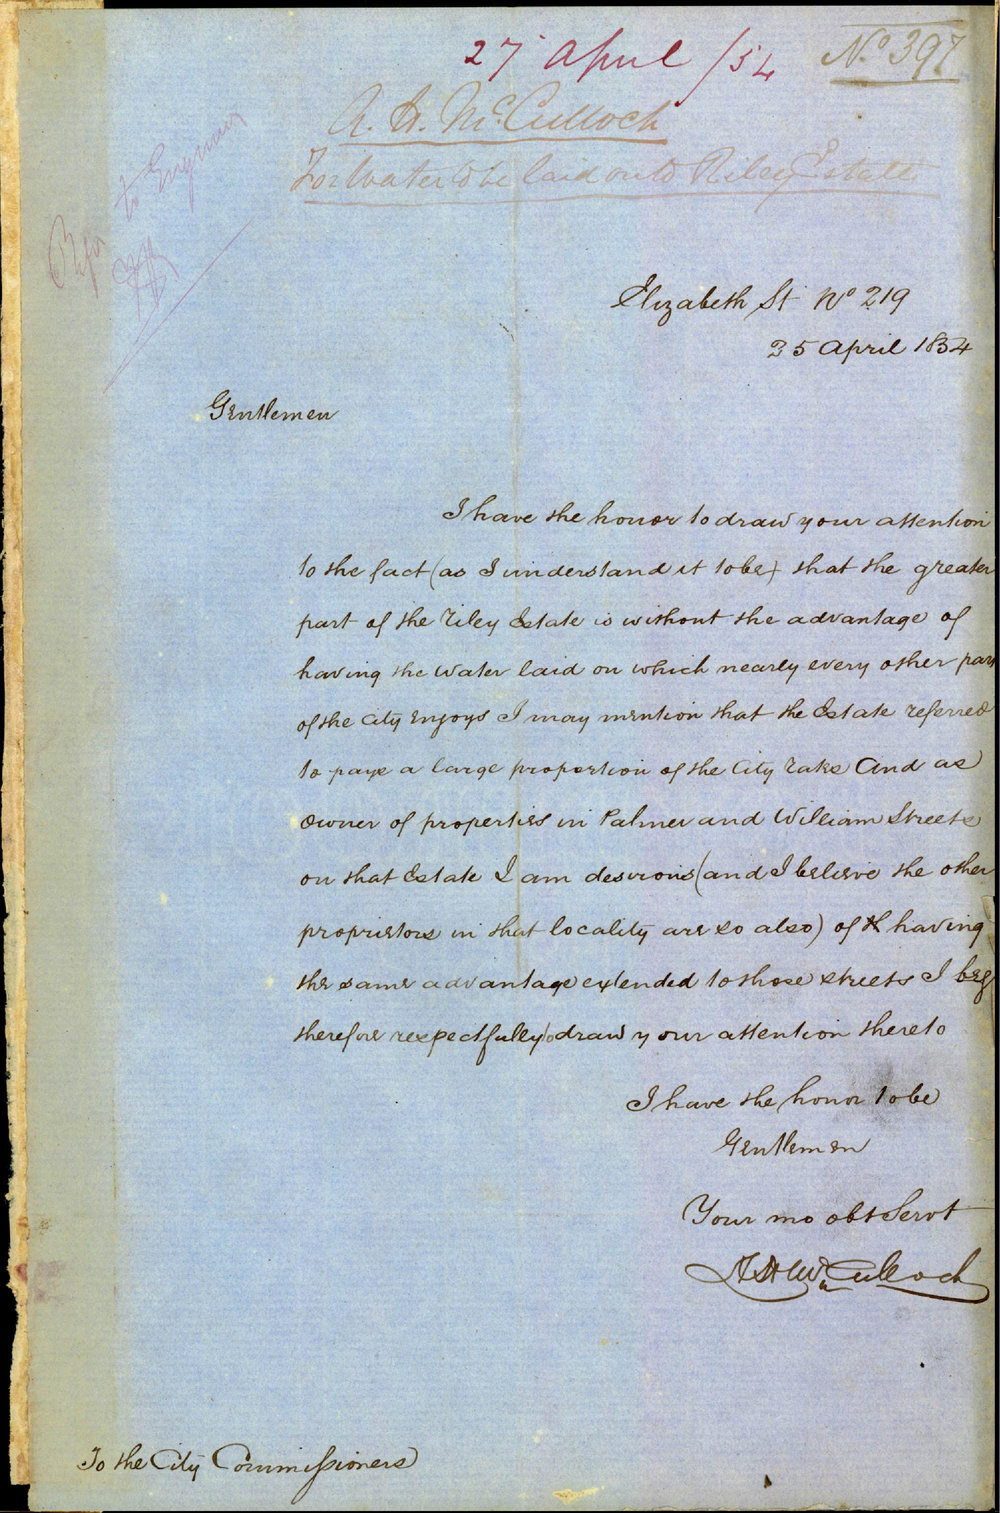 27 April /54
No 397
A. H. McCulloch
For Water to be laid on to Riley Estate
Refer to Engineer
Elizabeth St No 219
25 April 1854
Gentlemen
I have the honor to draw your attention
to the fact (as I understand it to be) that the greater
part of the Riley Estate is without the advantage of
having the Water laid on which nearly every other part
of the City enjoys I may mention that the Estate referred
to pays a large proportion of the City rates And as
Owner of properties in Palmer and William Streets
on that Estate I am desirous (and I believe the other
proprietors in that locality are so also) of having
the same advantage extended to those streets I beg
therefore respectfully to draw your attention thereto
I have the honor to be
Gentlemen
Your mo obt Servt
A H McCulloch
To the City Commissioners